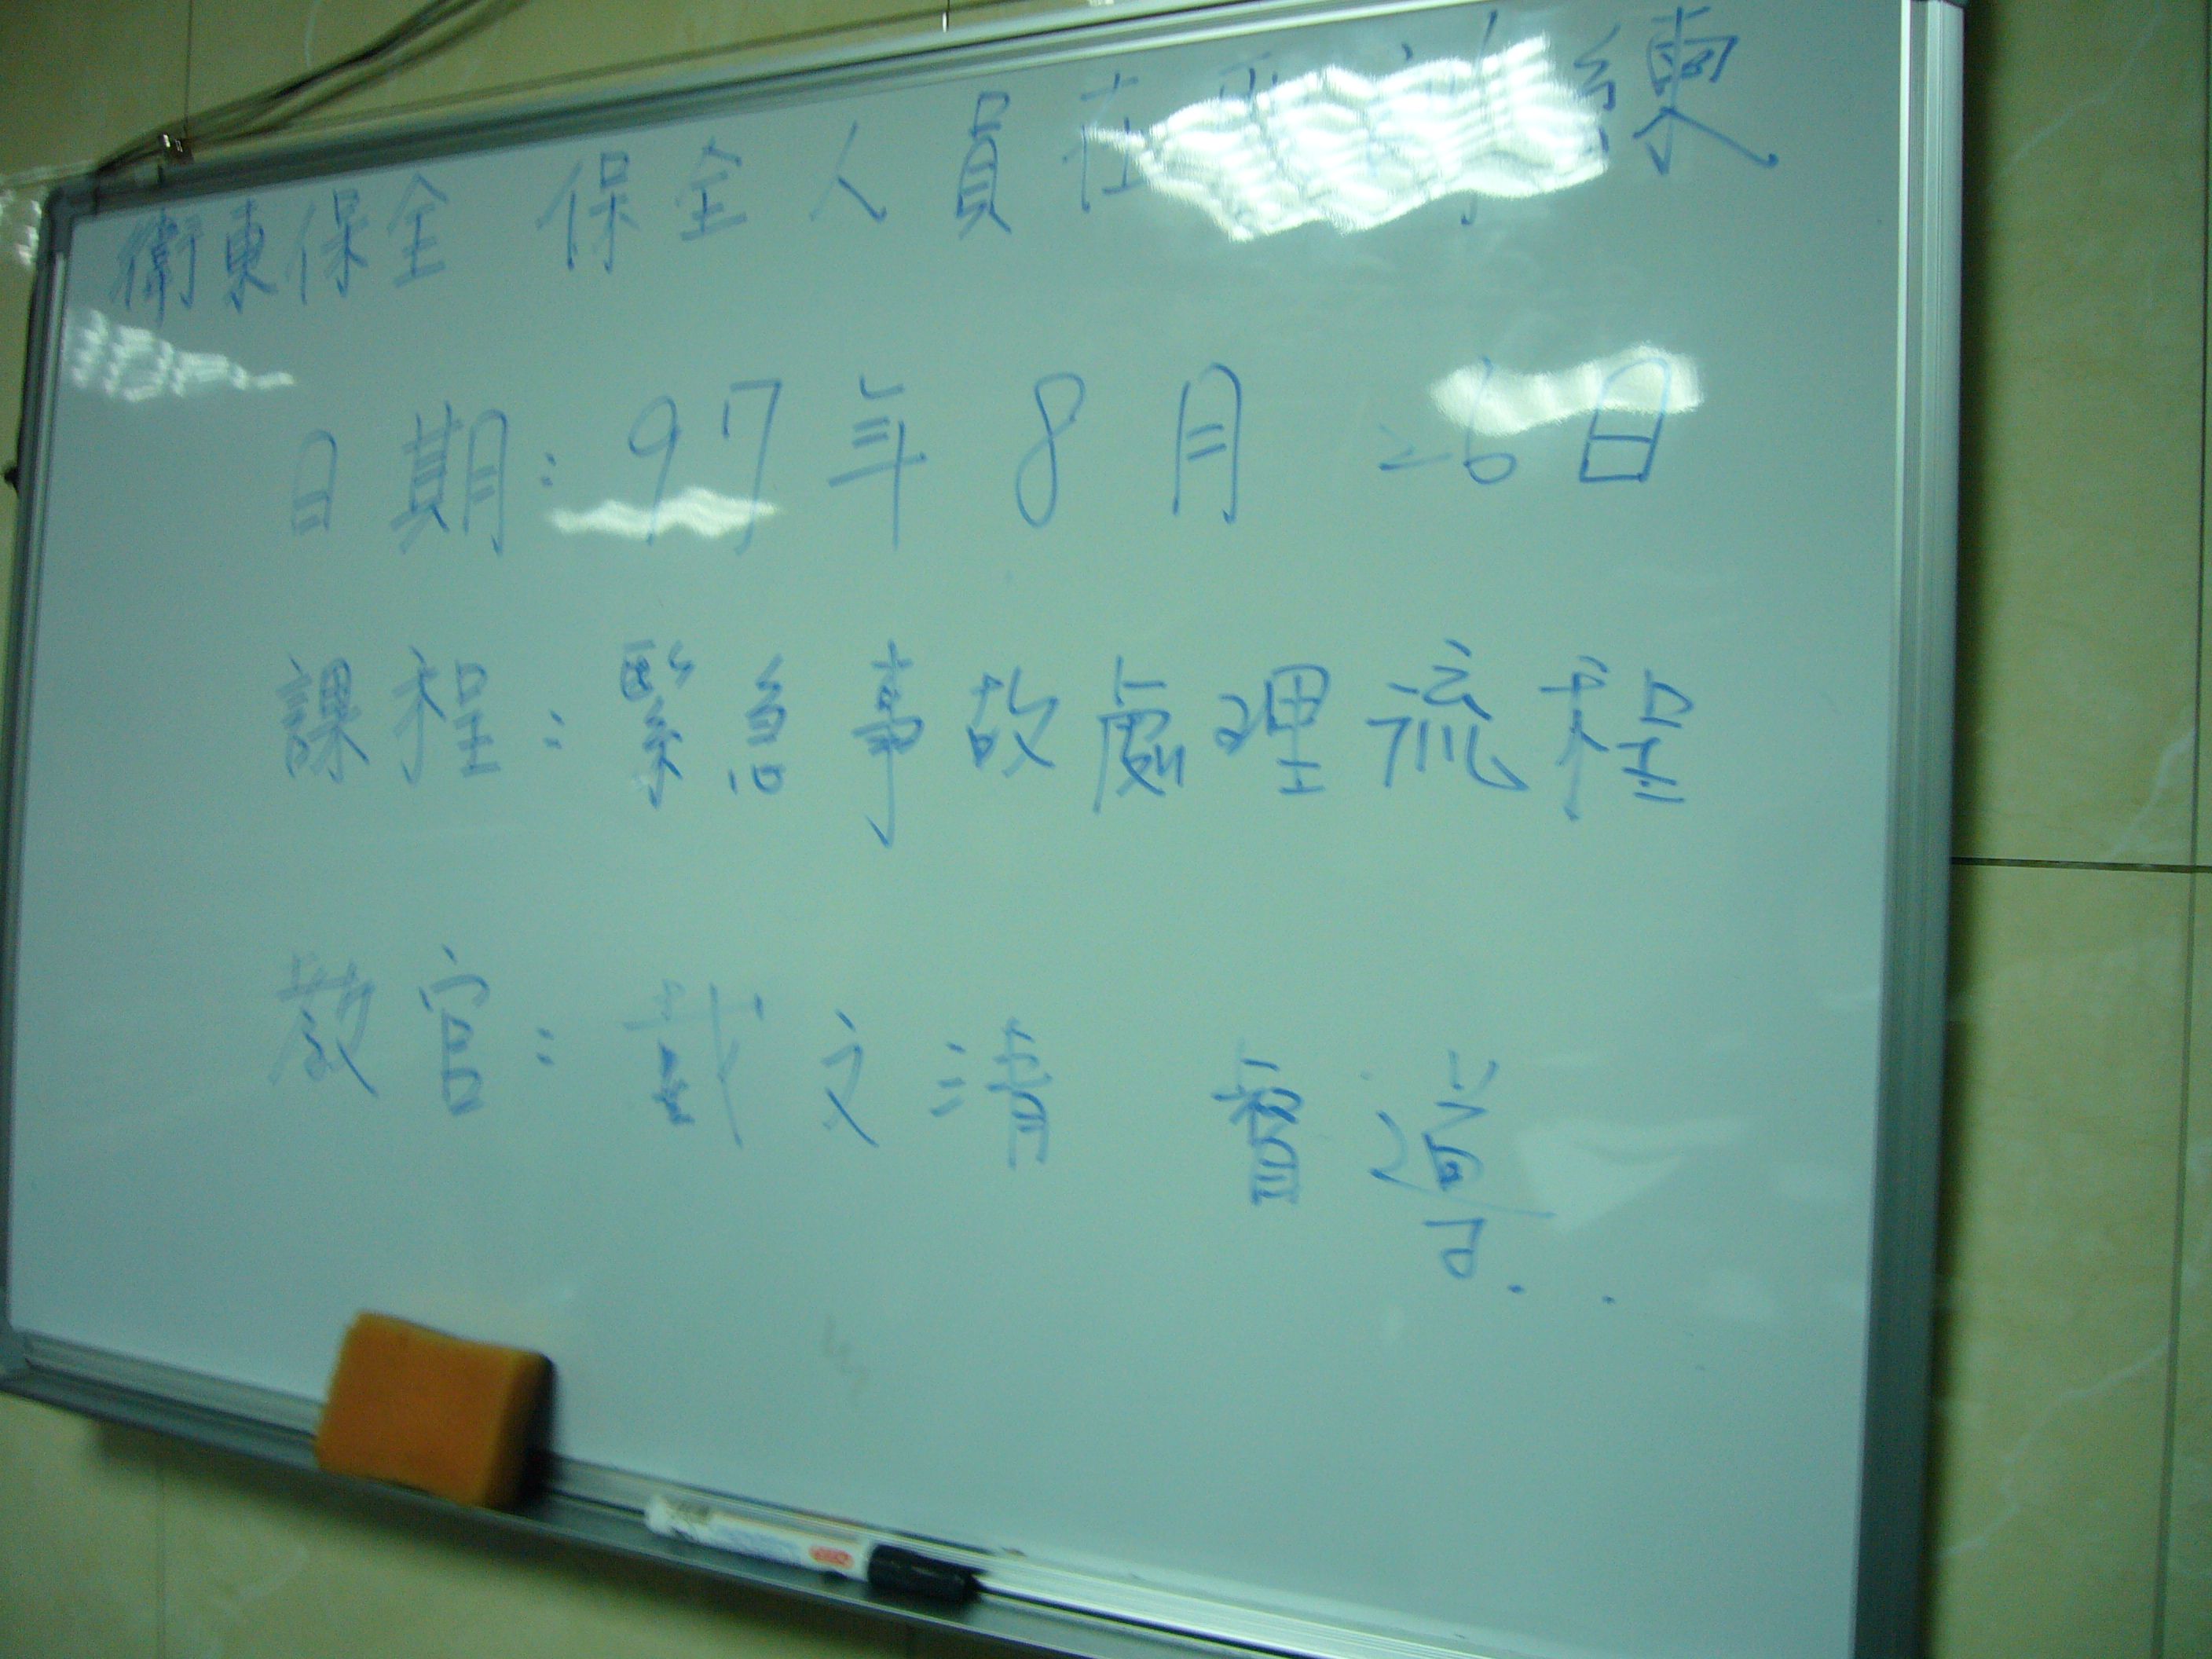 衛東保全 保全人員在 練
日期：97年8月26日
課程：緊急事故處理流程
教官：戴文清 督導